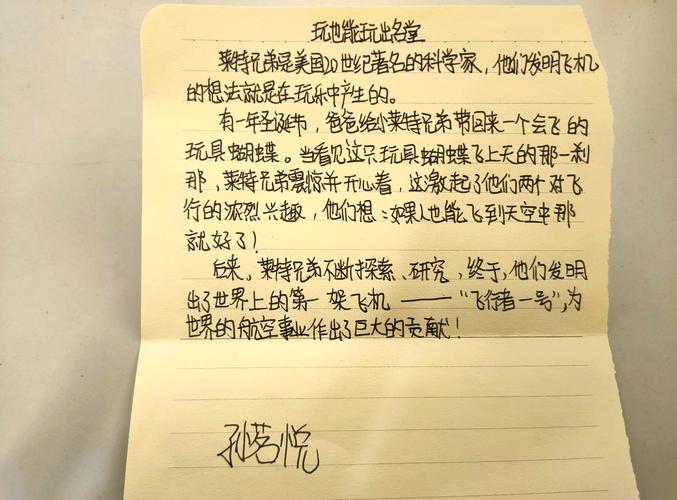 玩也能玩出名堂
莱特兄弟是美国20世纪著名的科学家，他们发明飞机
的想法就是在玩乐中产生的。
有一年圣诞节，爸爸给小莱特兄弟带回来一个会飞的
玩具蝴蝶。当看见这只玩具蝴蝶飞上天的那一刹
那，莱特兄弟震惊并开心着，这激起了他们两个对飞
行的浓烈兴趣，他们想：如果人也能飞到天空中那
就好了！
后来，莱特兄弟不断探索、研究，终于，他们发明
出了世界上的第一架飞机——“飞行者一号”，为
世界的航空事业作出了巨大的贡献！
孙茗悦